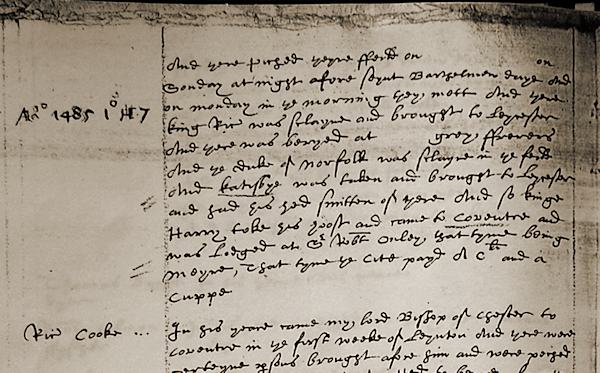 And there piched theyre ffeild on on
Sonday at night afore Seynt Barthelmew daye And
on monday in ye morning they mett And there
Ao 1485 1o H 7
king Ric was slayne and brought to Leycester
And there was beryed at grey ffreers
And ye Duke of Norfolk was slayne in ye feild
And Katisbye was taken and brought to Leycester
and had his hed smitten of there And so kinge
Harry toke his yoost and came to Coventre and
was Lodged at Robt Onley, that tyme being
meyre, That tyme ye Cite payd and a
Cuppe
Ric Cooke ... In his yeare came my lord Bishop of Chester to
Coventre in ye first weeke of Leynton And there were
certeyne psons brought afore him and were peched